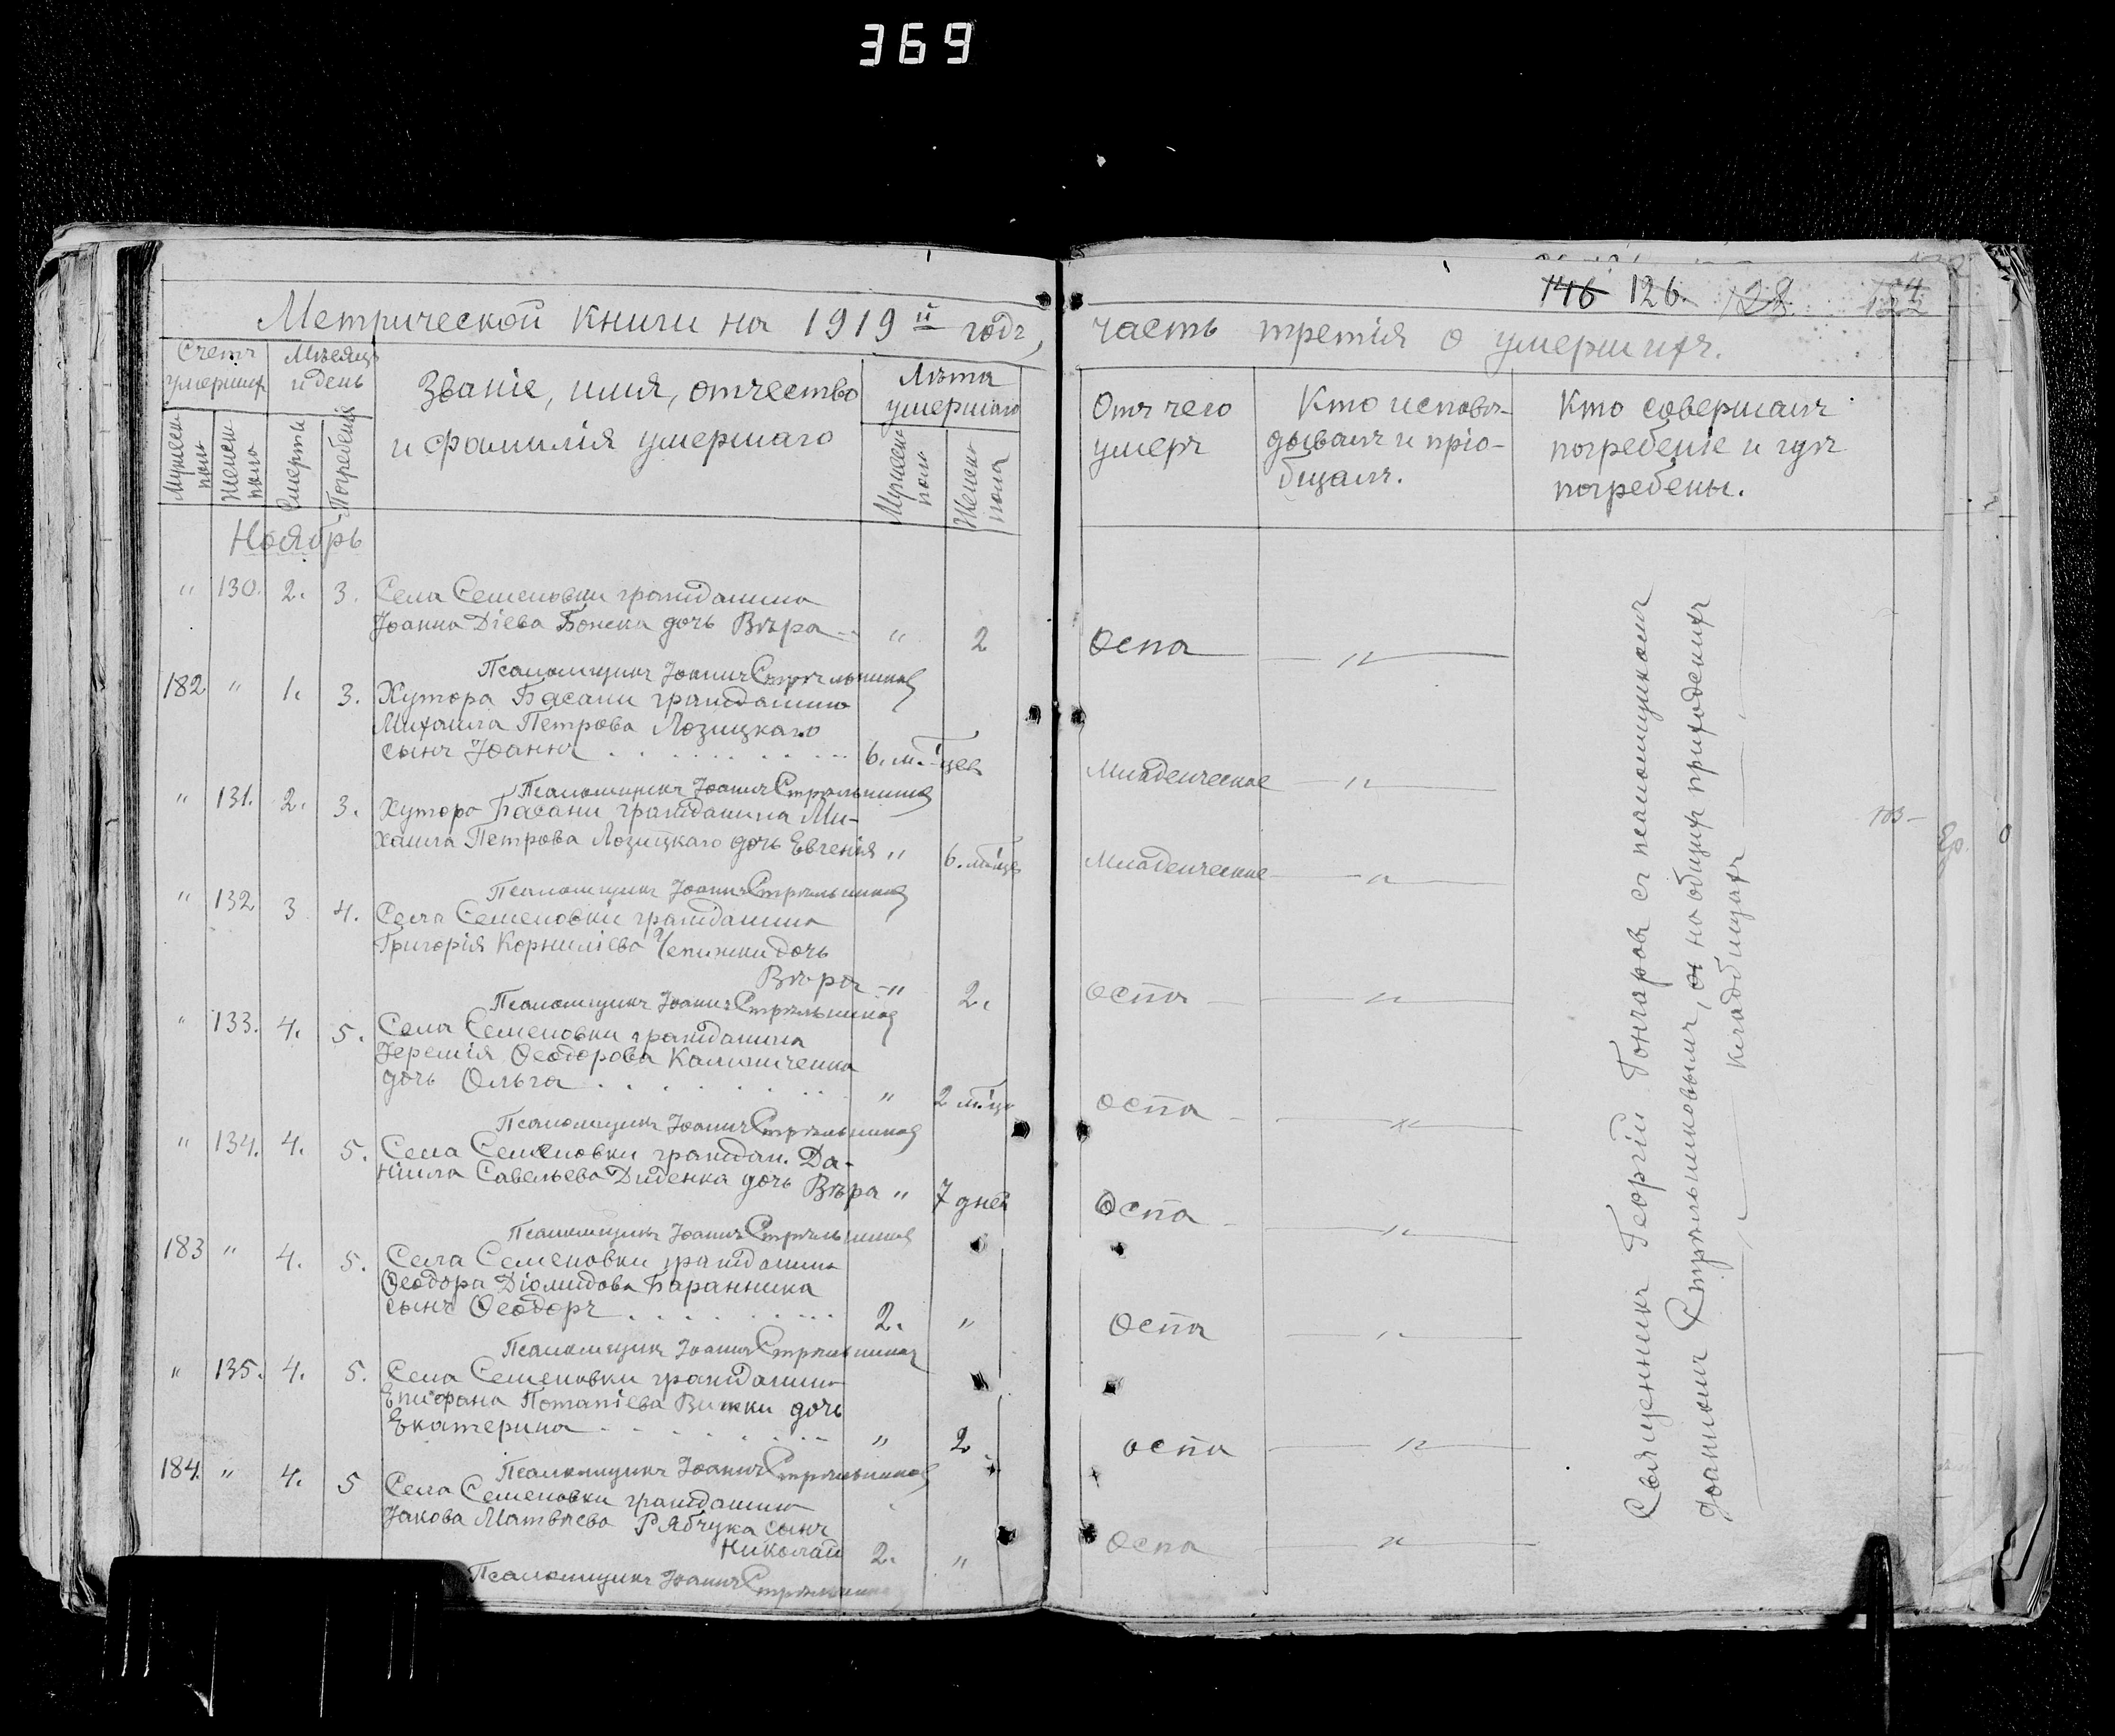 369
146 126. 128.
Метрической книги на 1919й годъ,
часть третія о умершихъ.
Счетъ умершихъ
Мѣсяцъ и день
Званіе, имя, отчество
и фамилія умершаго
Лѣта умершаго
Мужеск. пола
Женск. пола
Смерти
Погребенія
Мужеска пола
Женска пола
Отъ чего
умеръ
Кто исповѣ-
дывалъ и пріо-
бщалъ.
Кто совершалъ
погребеніе и гдѣ
погребены.
Ноябрь
" 130. 2. 3. Села Семеновки гражданина
Іоанна Діева Бонека дочь Вѣра " 2 Оспа "
Псаломщикъ Іоаннъ Стрѣльниковъ
182 " 1. 3. Хутора Басани гражданина
Михаила Петрова Лозицкаго
сынъ Іоаннъ 6. м-цев Младенческое "
Псаломщикъ Іоаннъ Стрѣльниковъ
" 131. 2. 3. Хутора Басани гражданина Ми-
хаила Петрова Лозицкаго дочь Евгенія " 6. м-цев Младенческое "
Псаломщикъ Іоаннъ Стрѣльниковъ
" 132 3 4. Села Семеновки гражданина
Григорія Корниліева Чепижки дочь
Вѣра " 2. оспа "
Псаломщикъ Іоаннъ Стрѣльниковъ
" 133. 4. 5. Села Семеновки гражданина
Іеремія Ѳеодорова Калиниченка
дочь Ольга " 2 м-ца оспа "
Псаломщикъ Іоаннъ Стрѣльниковъ
" 134. 4. 5. Села Семеновки граждан. Да-
ніила Савельева Диденка дочь Вѣра " 7 дней Оспа "
Псаломщикъ Іоаннъ Стрѣльниковъ
183 " 4. 5. Села Семеновки гражданина
Ѳеодора Діомидова Баранника
сынъ Ѳеодоръ 2. " Оспа "
Псаломщикъ Іоаннъ Стрѣльниковъ
" 135. 4. 5. Села Семеновки гражданина
Епифана Потапіева Вижки дочь
Екатерина " 2 оспа "
Псаломщикъ Іоаннъ Стрѣльниковъ
184. " 4. 5 Села Семеновки гражданина
Іакова Матвѣева Рябчука сынъ
Николай 2. " Оспа "
Псаломщикъ Іоаннъ Стрѣльниковъ
Священникъ Георгій Гончаровъ съ псаломщикомъ
Іоанномъ Стрѣльниковымъ, на общихъ приходскихъ
кладбищахъ
103